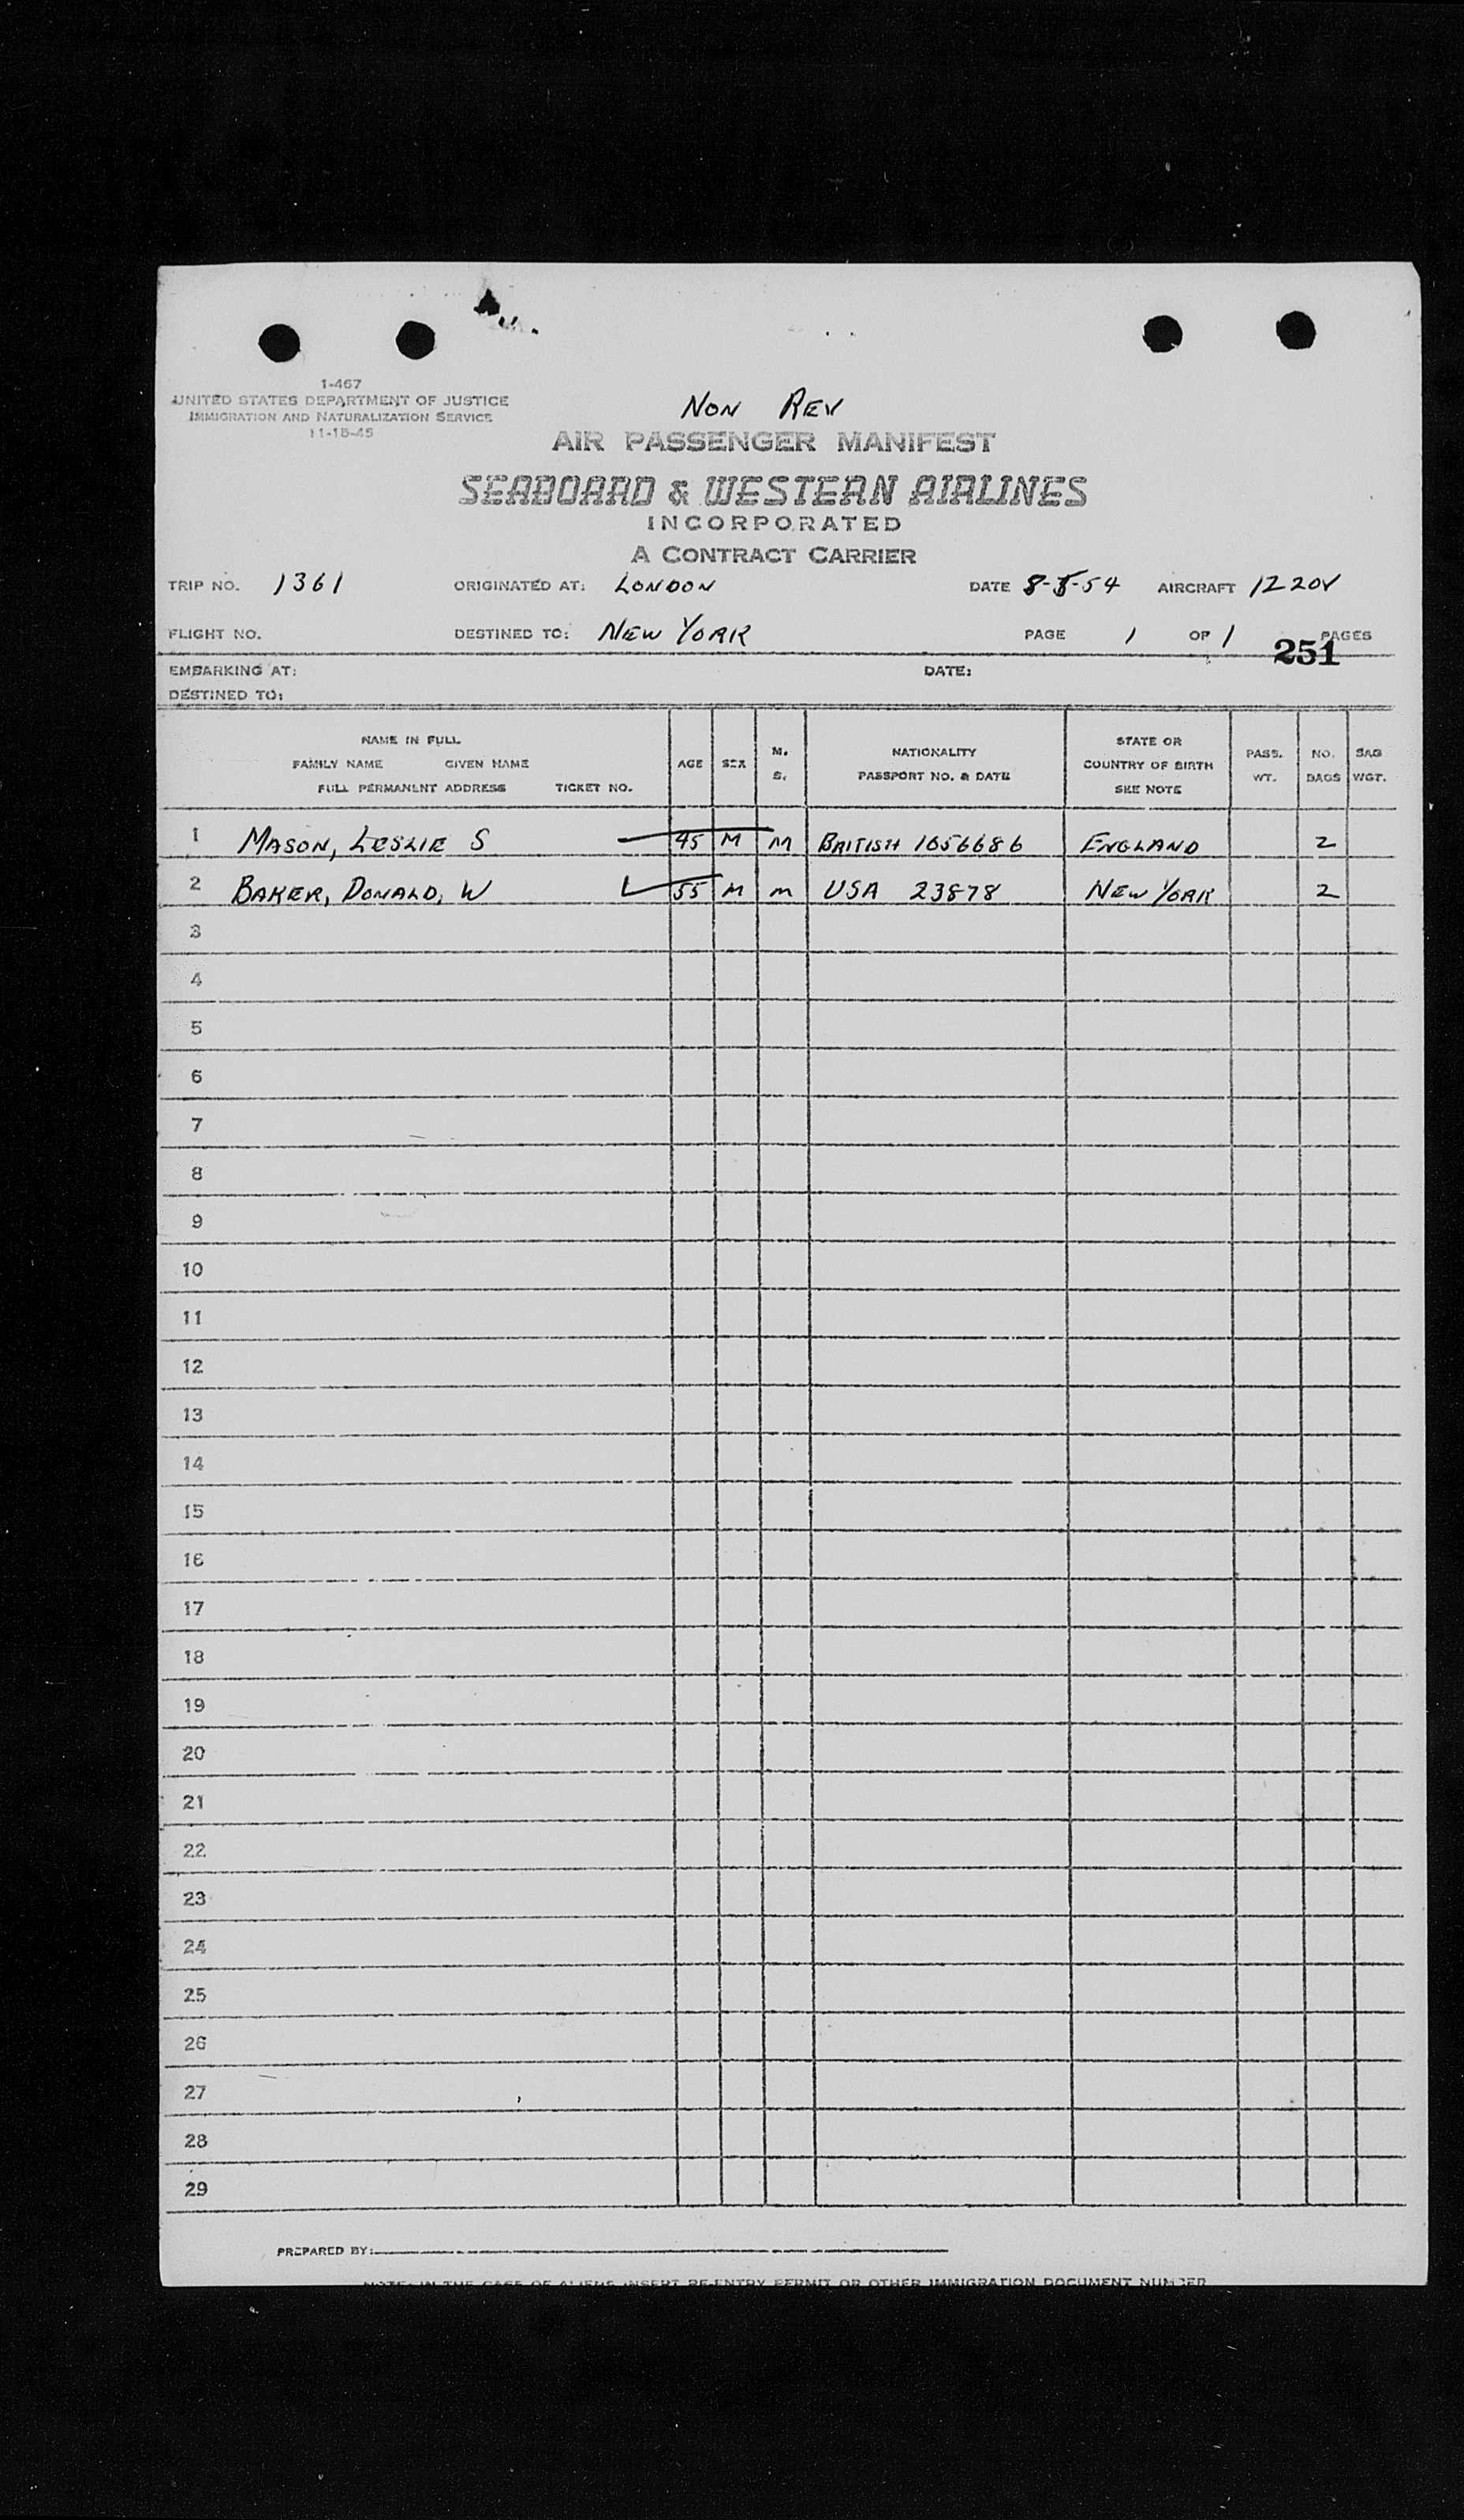 1-467
UNITED STATES DEPARTMENT OF JUSTICE
IMMIGRATION AND NATURALIZATION SERVICE
11-15-45
NON REV
AIR PASSENGER MANIFEST
SEABOARD & WESTERN AIRLINES
INCORPORATED
A CONTRACT CARRIER
TRIP NO. 1361 ORIGINATED AT: LONDON DATE 8-8-54 AIRCRAFT 1220V
FLIGHT NO. DESTINED TO: NEW YORK PAGE 1 OF 1 PAGES
251
EMBARKING AT: DATE:
DESTINED TO:
NAME IN FULL
FAMILY NAME GIVEN NAME
FULL PERMANENT ADDRESS TICKET NO.
AGE
SEX
M.
S.
NATIONALITY
PASSPORT NO. & DATE
STATE OR
COUNTRY OF BIRTH
SEE NOTE
PASS.
WT.
NO.
BAGS
BAG
WGT.
1 MASON, LESLIE S 45 M M BRITISH 1656686 ENGLAND 2
2 BAKER, DONALD, W 55 M M USA 23878 NEW YORK 2
3
4
5
6
7
8
9
10
11
12
13
14
15
16
17
18
19
20
21
22
23
24
25
26
27
28
29
PREPARED BY:
NOTE: IN THE CASE OF ALIENS INSERT RE-ENTRY PERMIT OR OTHER IMMIGRATION DOCUMENT NUMBER